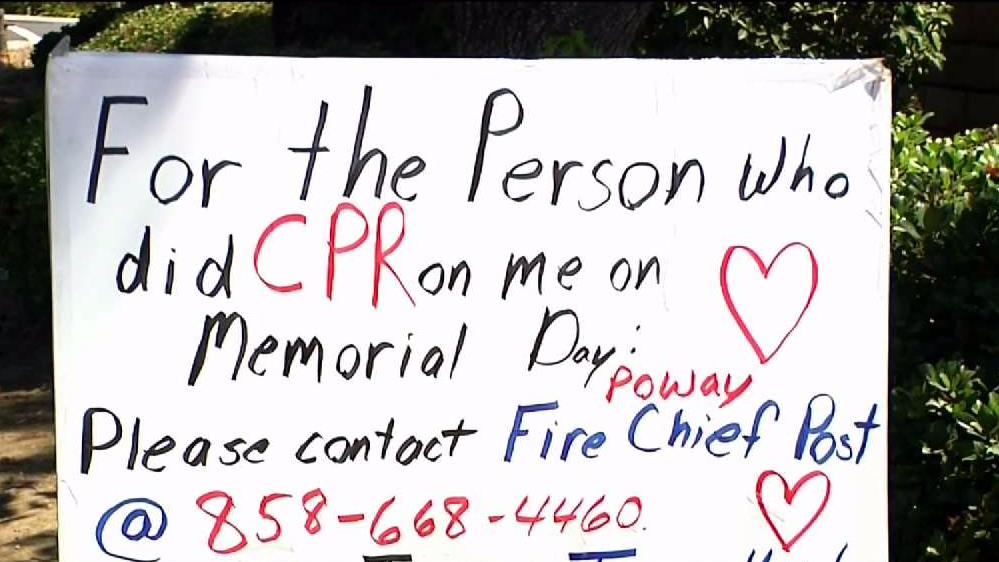 For the Person who
did CPR on me on
Memorial Day:
Poway
Please contact Fire Chief Post
@ 858-668-4460.